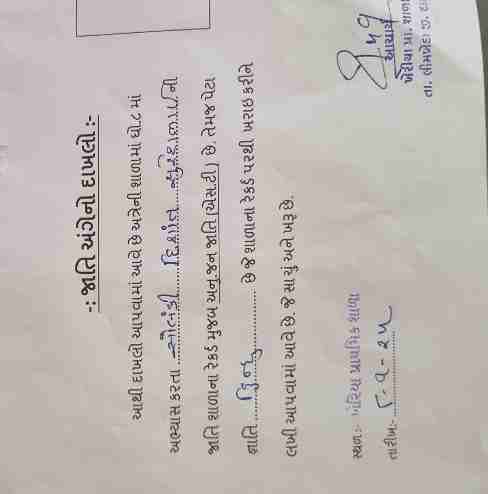 -: જાતિ અંગેનો દાખલો :-
આથી દાખલો આપવામાં આવે છે અત્રેની શાળામાં ધો.૮ માં
અભ્યાસ કરતા સોલંકી દિશાંત સુરેશભાઈ ની
જાતિ શાળાના રેકર્ડ મુજબ અનુ.જન જાતિ (એસ.ટી) છે. તેમજ પેટા
જ્ઞાતિ હિન્દુ છે જે શાળાના રેકર્ડ પરથી ખરાઇ કરીને
લખી આપવામાં આવે છે. જે સાચું અને ખરૂ છે.
સ્થળ:- ખેરિયા પ્રાથમિક શાળા
તારીખ:- ૮-૧-૨૫
આચાર્ય
ખેરીયા પ્રા. શાળા
તા: લીમખેડા જી.